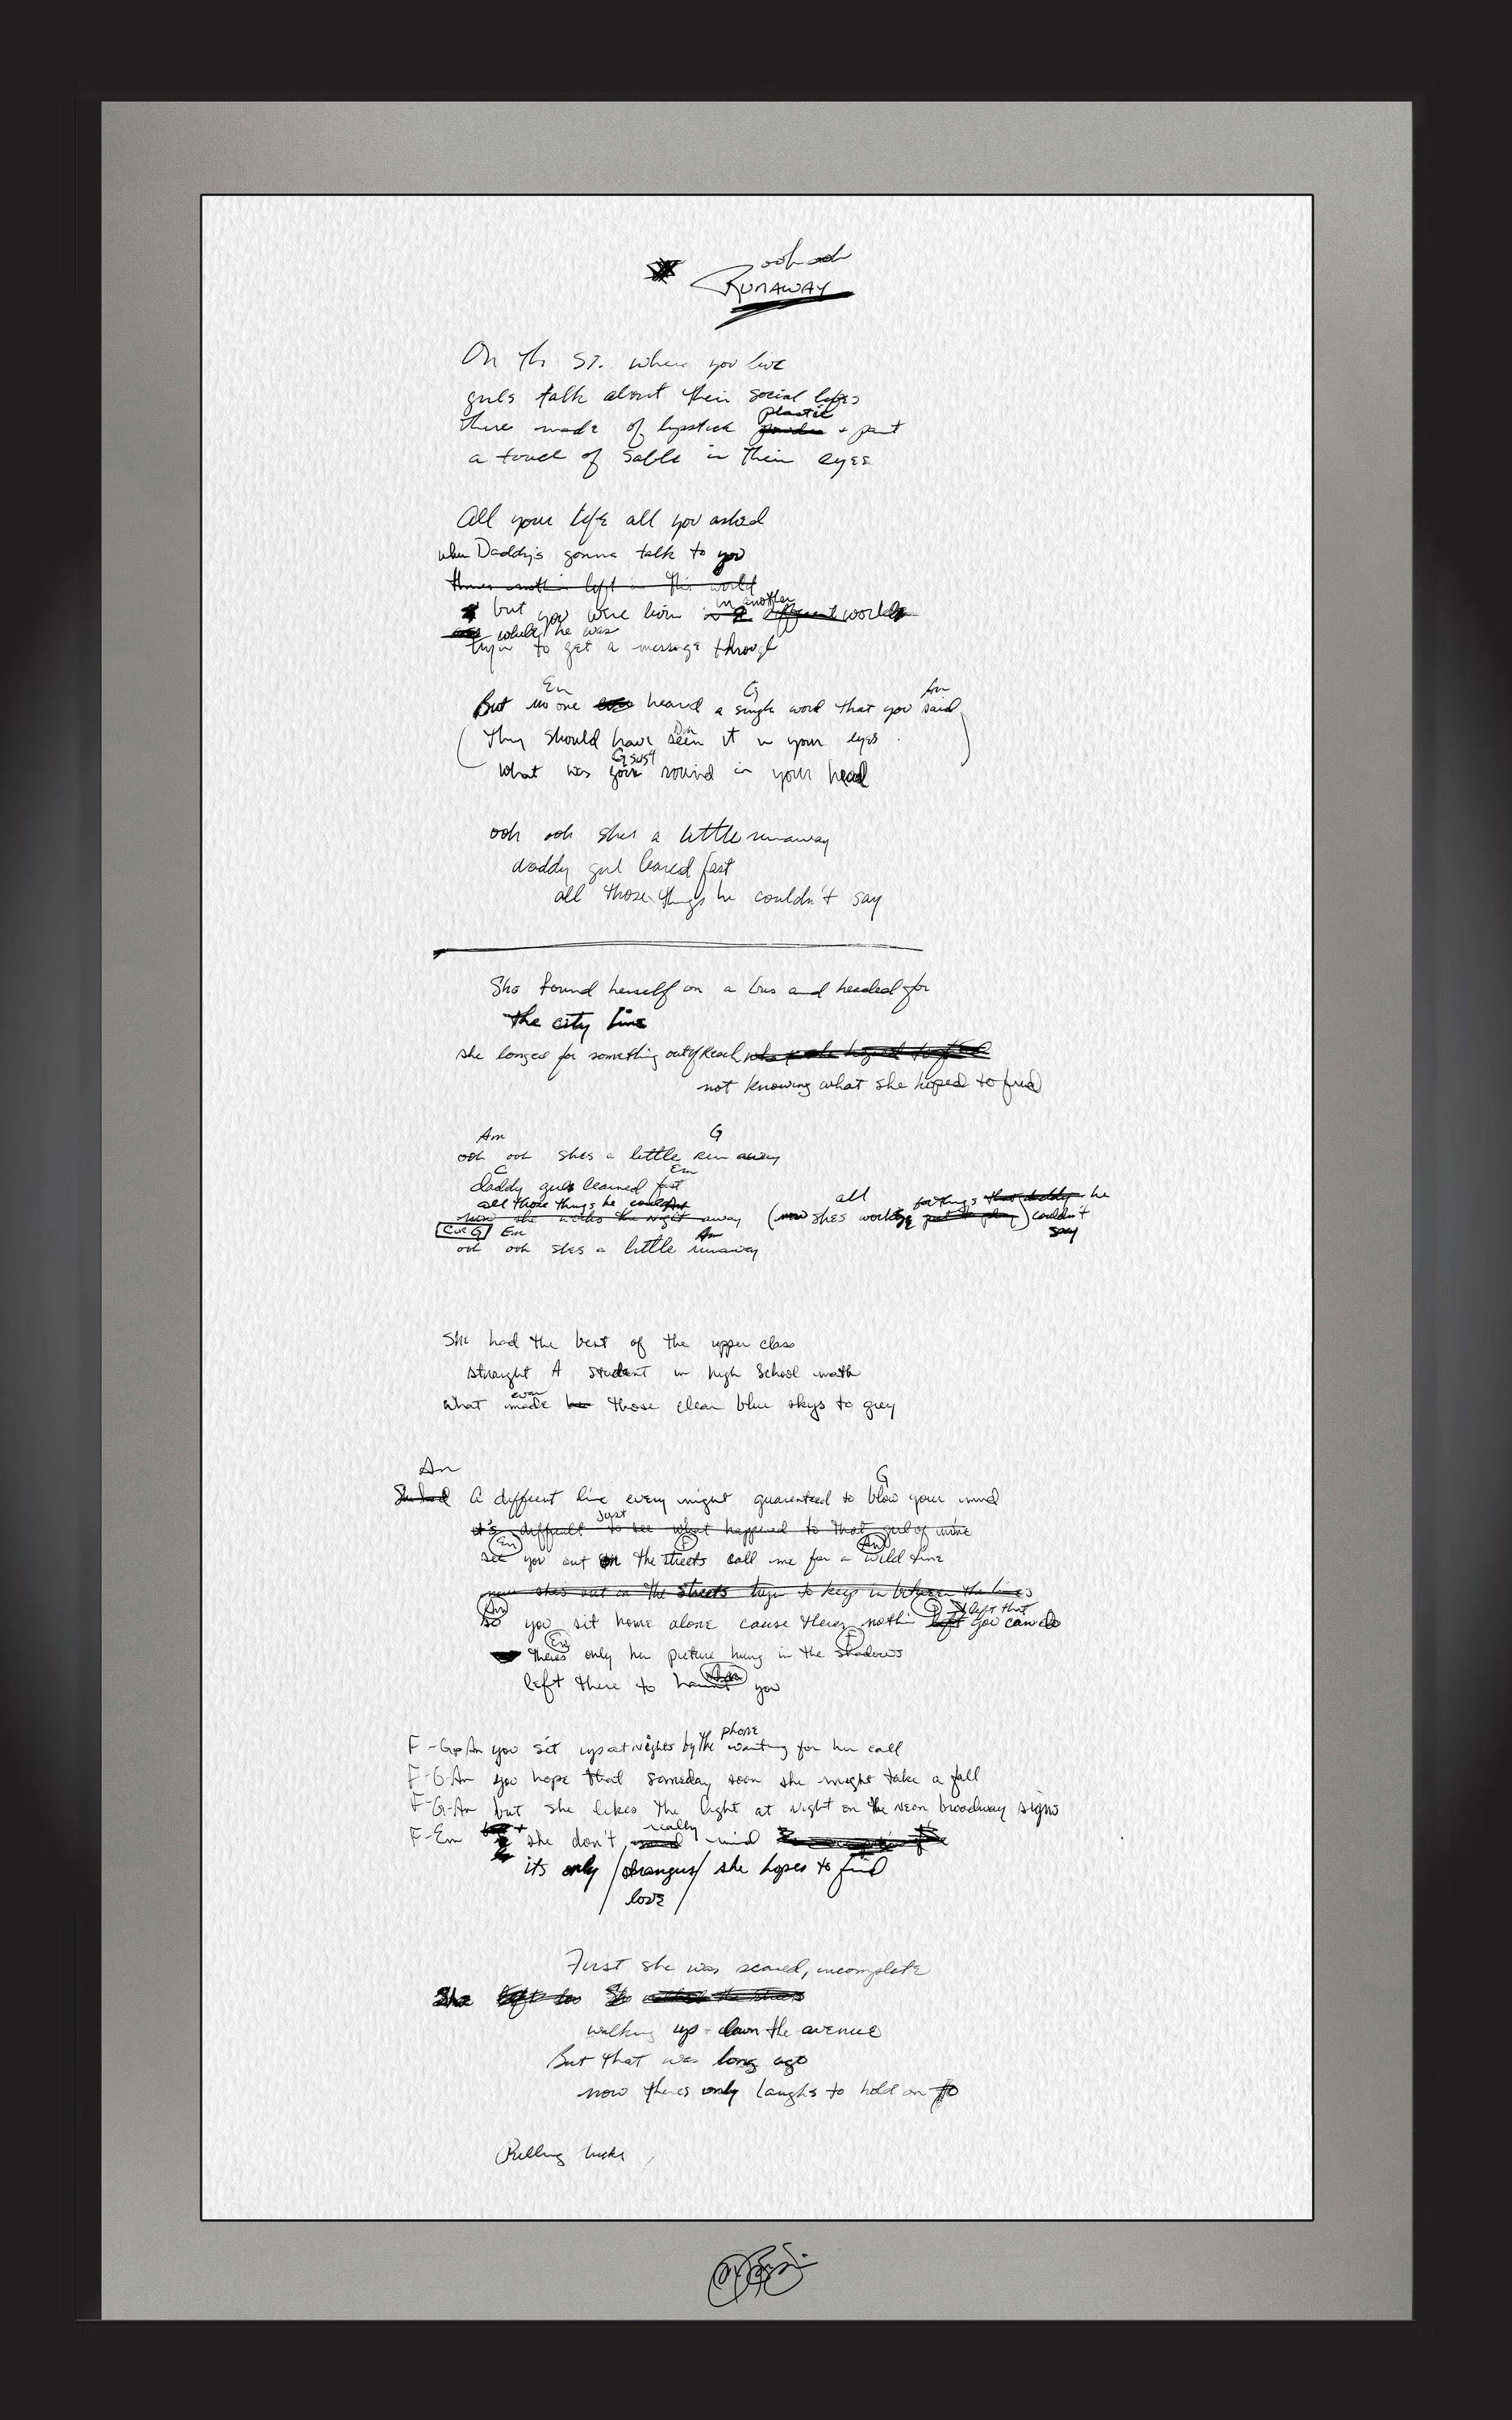 ooh ooh
RUNAWAY
On th ST. where you live
girls talk about their social lifes
plastic
there made of lipstick + paint
a touch of Sable in their eyes
All your life all you asked
when Daddy's gonna talk to you
theres nothin left in this world
in another
but you were livin different world
while he was
tryin to get a message through
Em G Am
But no one heard a single word that you said
Dm
They should have seen it in your eyes
G sus4
What was goin round in your head
ooh ooh shes a little runaway
daddy girl learned fast
all those things he couldn't say
She found herself on a bus and headed for
the city line
she longed for something out of Reach what she hoped to find
not knowing what she hoped to find
Am G
ooh ooh shes a little run away
C Em
daddy girls learned fast
all those things he couldn't
all for things that daddy he
now she works the night away (now shes working ) couldn't
say
Cut G Em Am
ooh ooh shes a little runaway
She had the best of the upper class
straight A student in high School math
even
what made her those clear blue skys to grey
Am G
She had A different line every night guaranteed to blow your mind
just
it's difficult to see what happened to that girl of mine
Em F Am
see you out on the streets call me for a wild time
now shes out on the streets tryin to keep in between the lines
Am G left that
so you sit home alone cause theres nothin left you can do
Em F
theres only her picture hung in the shadows
Am
left there to haunt you
phone
F-G-Am you sit up at Nights by the waiting for her call
F-G-Am you hope that someday soon she might take a fall
F-G-Am but she likes the light at Night on the Neon broadway signs
really
F-Em she don't mind
its only /strangers/ she hopes to find
/ love /
First she was scared, incomplete
She She
walking up + down the avenue
But that was long ago
now theres only laughs to hold on to